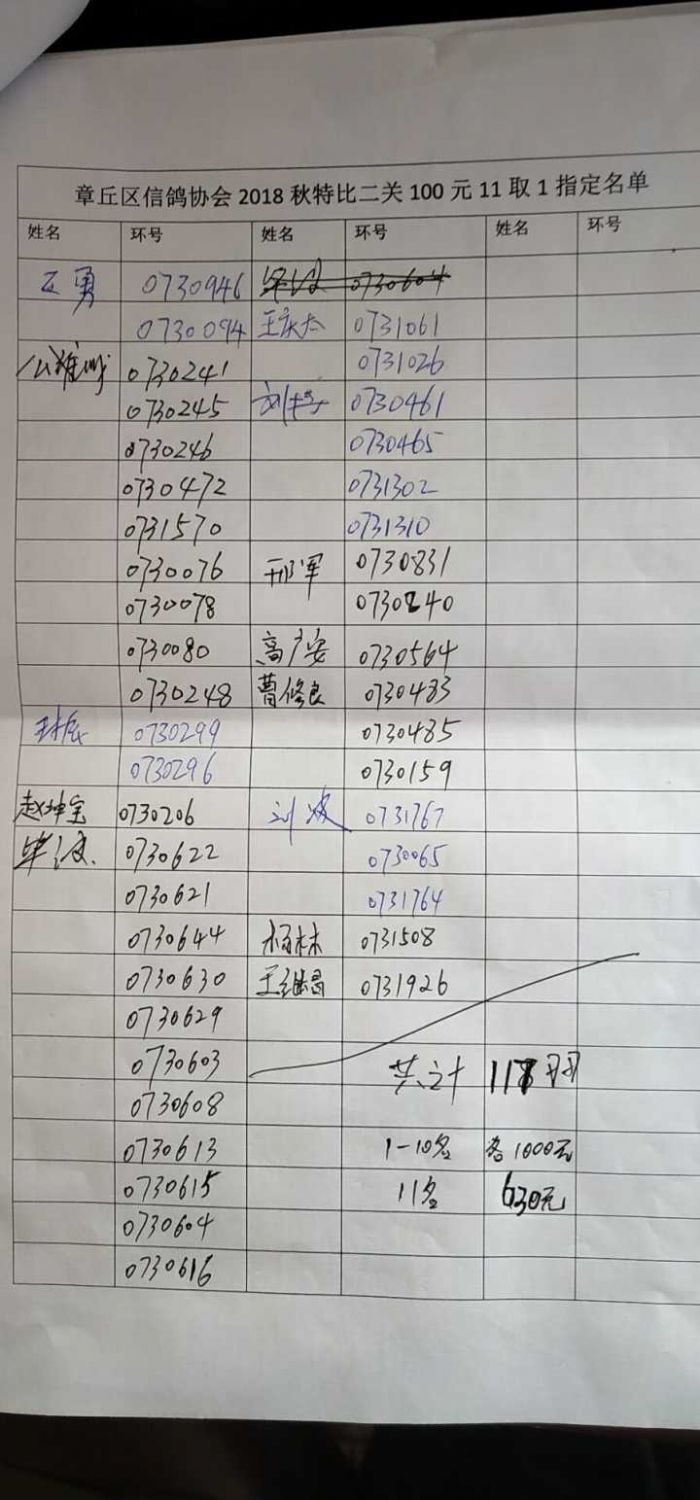 章丘区信鸽协会 2018 秋特比二关 100 元 11 取 1 指定名单
姓名 环号 姓名 环号 姓名 环号
勇 0730946 毕波 0730604
0730094 王庆太 0731061
0730241 0731026
0730245 刘 0730461
0730246 0730465
0730472 0731302
0731570 0731310
0730076 邢军 0730831
0730078 0730240
0730080 高广安 0730564
0730248 曹修良 0730483
0730299 0730485
0730296 0730159
赵坤宝 0730206 刘波 0731767
毕波 0730622 0730065
0730621 0731764
0730644 杨林 0731508
0730630 王继昌 0731926
0730629
0730603 共计 羽
0730608
0730613 1-10名 各1000元
0730615 11名 630元
0730604
0730616